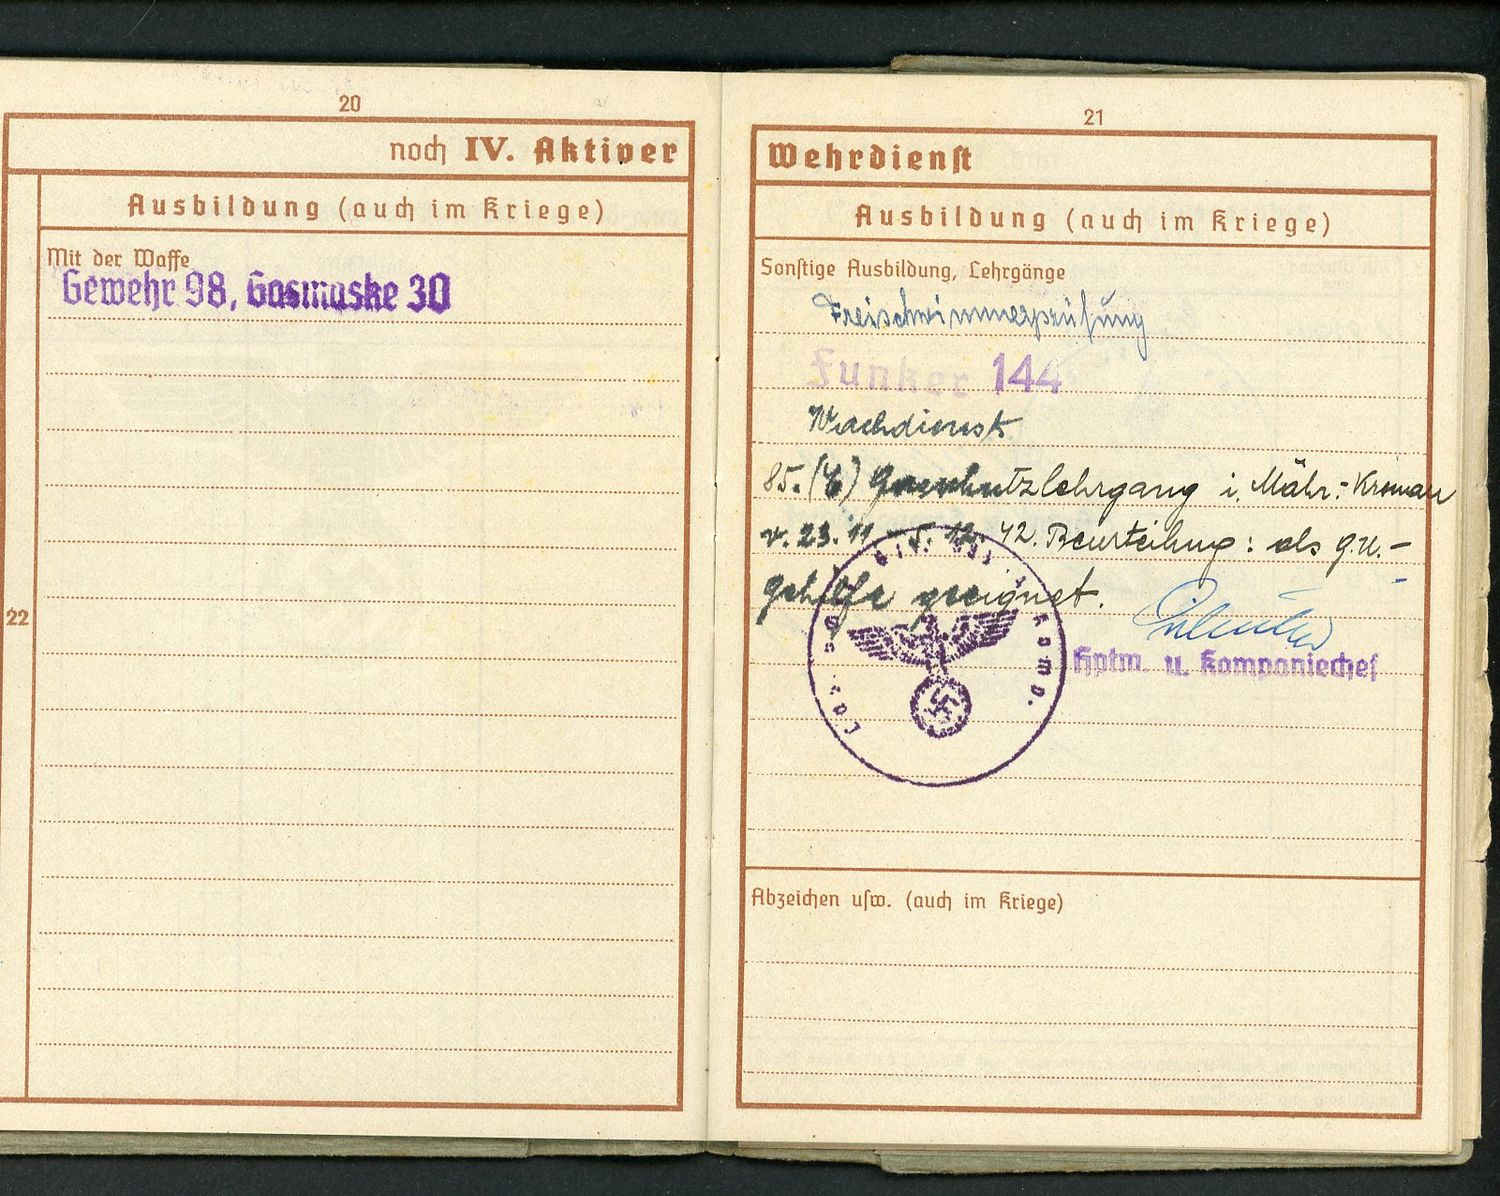 20
noch IV. Aktiver
Ausbildung (auch im Kriege)
Mit der Waffe
Gewehr 98, Gasmaske 30
22
21
Wehrdienst
Ausbildung (auch im Kriege)
Sonstige Ausbildung, Lehrgänge
Freischwimmerprüfung
Funker 144
Wachdienst
85. Gasschutzlehrgang i. Mähr.-Kromau
v. 23.11.-5.12.42. Beurteilung: als g.U.-
Gehilfe geeignet.
Hptm. u. Kompaniechef
Komp.
Abzeichen usw. (auch im Kriege)